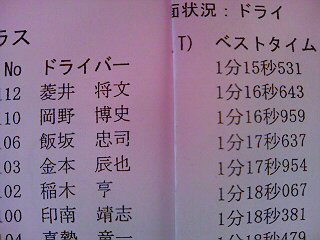 面状況：ドライ
ラス
T) ベストタイム
No ドライバー
112 菱井 将文 1分15秒531
110 岡野 博史 1分16秒643
106 飯坂 忠司 1分16秒959
103 金本 辰也 1分17秒637
102 稲木 亨 1分17秒954
100 印南 靖志 1分18秒067
104 真勢 竜一 1分18秒381
1分18秒479